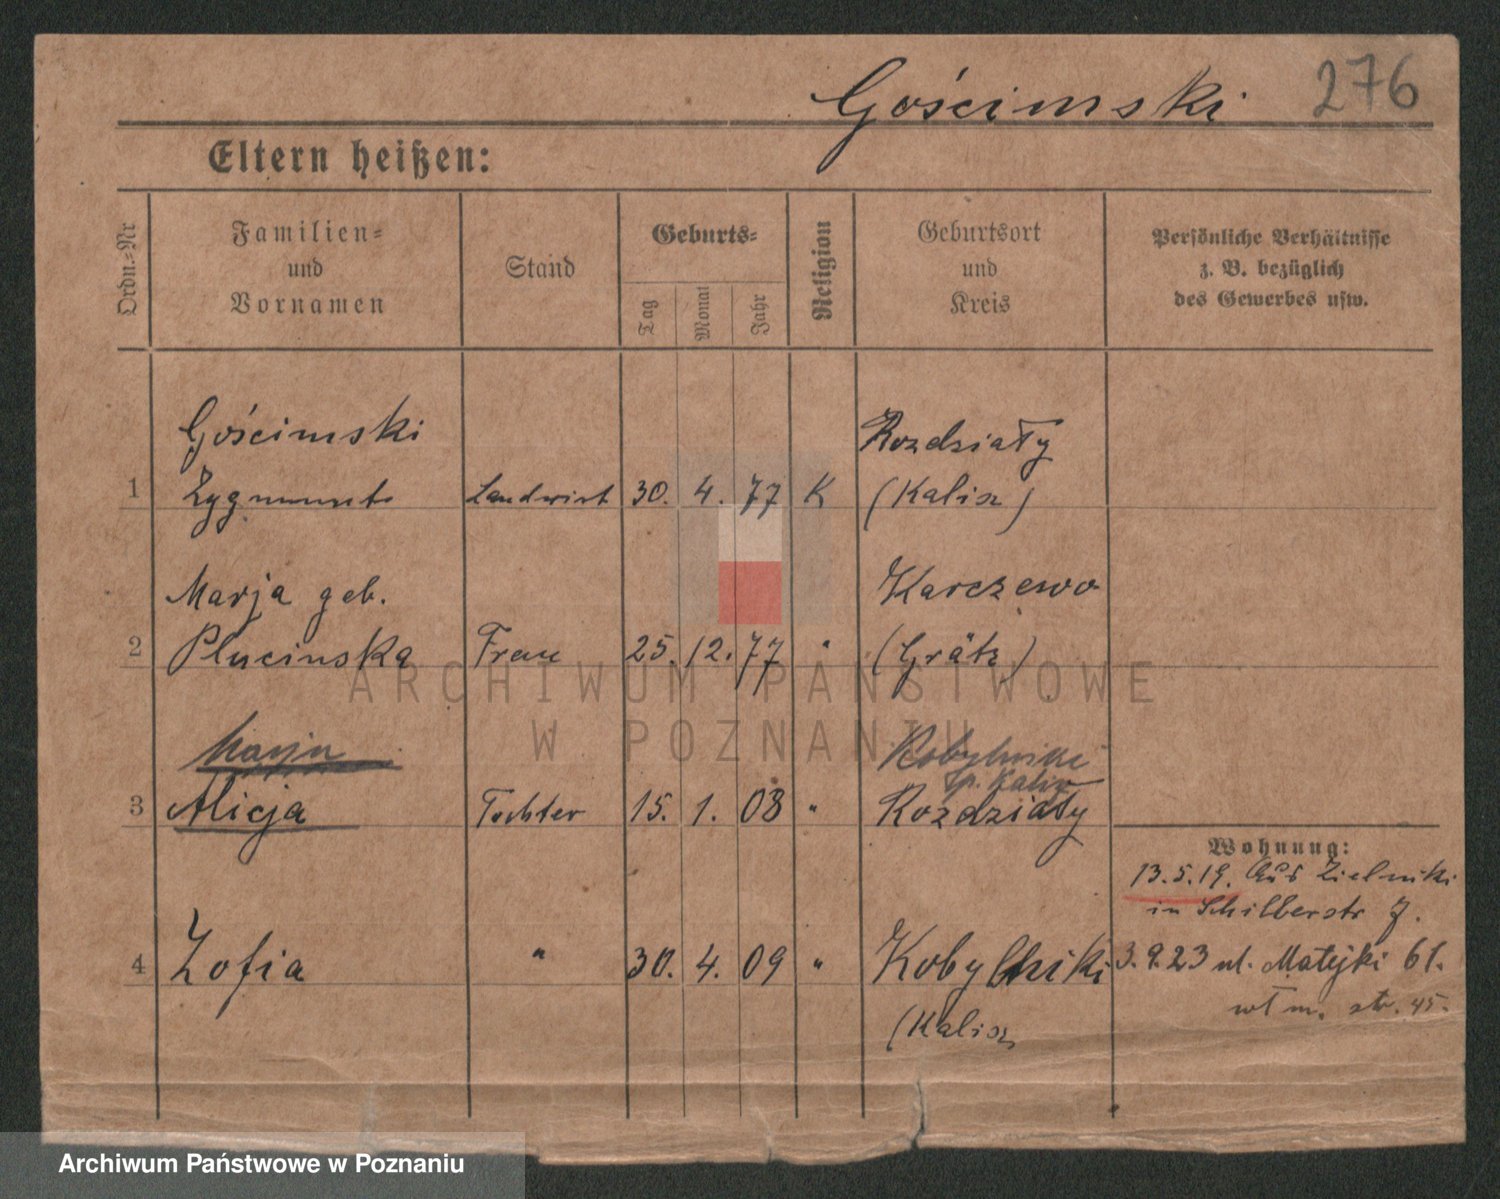 Gościmski 276
Eltern heißen:
Ordn.-Nr
Familien-
und
Vornamen
Stand
Geburts-
Tag
Monat
Jahr
Religion
Geburtsort
und
Kreis
Persönliche Verhältnisse
z. B. bezüglich
des Gewerbes usw.
Gościmski Rozdziały
1 Zygmunt Landwirt 30. 4. 77 K (Kalisz)
Marja geb. Karczewo
2 Plucinska Frau 25. 12. 77 " (Grätz)
Marja Kobylniki
Kalisz
3 Alicja Tochter 15. 1. 08 " Rozdziały
Wohnung:
13.5.19. Aus Zielniki
in Schillerstr 7.
4 Zofia " 30. 4. 09 " Kobylniki 3.9.23 ul. Matejki 61.
(Kalisz
wł m. str. 45.
ARCHIWUM PAŃSTWOWE
W POZNANIU
Archiwum Państwowe w Poznaniu